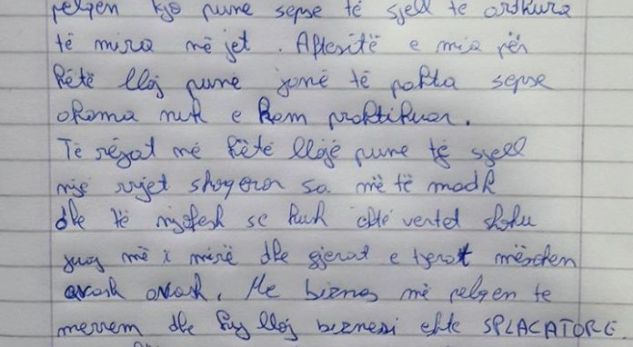 pelqen kjo pune sepse të sjell te ardhura
të mira në jet. Aftesitë e mia për
këtë lloj pune janë të pakta sepse
akoma nuk e kam praktikuar.
Të rëjat në këtë llojë pune të sjell
një rrjet shoqeror sa më të madh
dhe të njofesh se kush është vertet shoku
juaj më i mirë dhe gjerat e tjerat mësohen
avash avash. Me biznes më pelqen te
merrem dhe ky lloj biznesi eshte SPLACATORE.